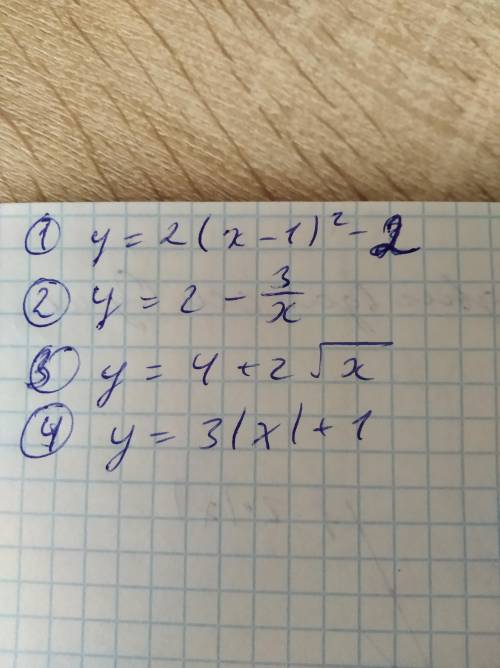 ① y = 2(x - 1)² - 2
② y = 2 - 3/x
③ y = 4 + 2√x
④ y = 3|x| + 1